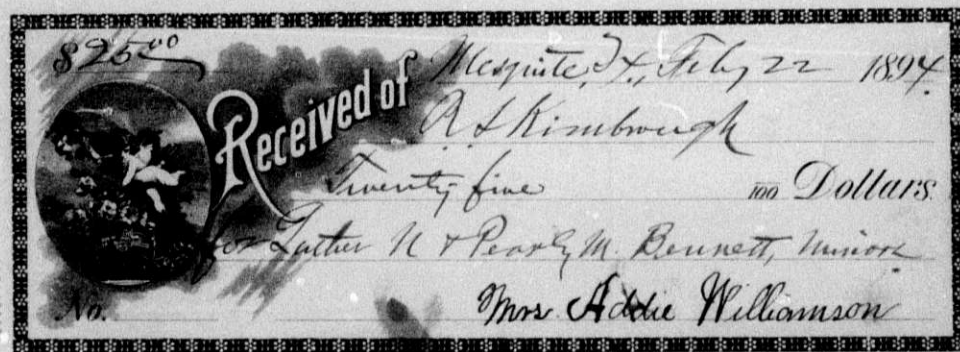 $25.00
Mesquite, Tx, Feby 22 1894
Received of R S Kimbrough
Twenty five 100 Dollars
for Luther N & Pearly M. Bennett, minors
No. Mrs Addie Williamson